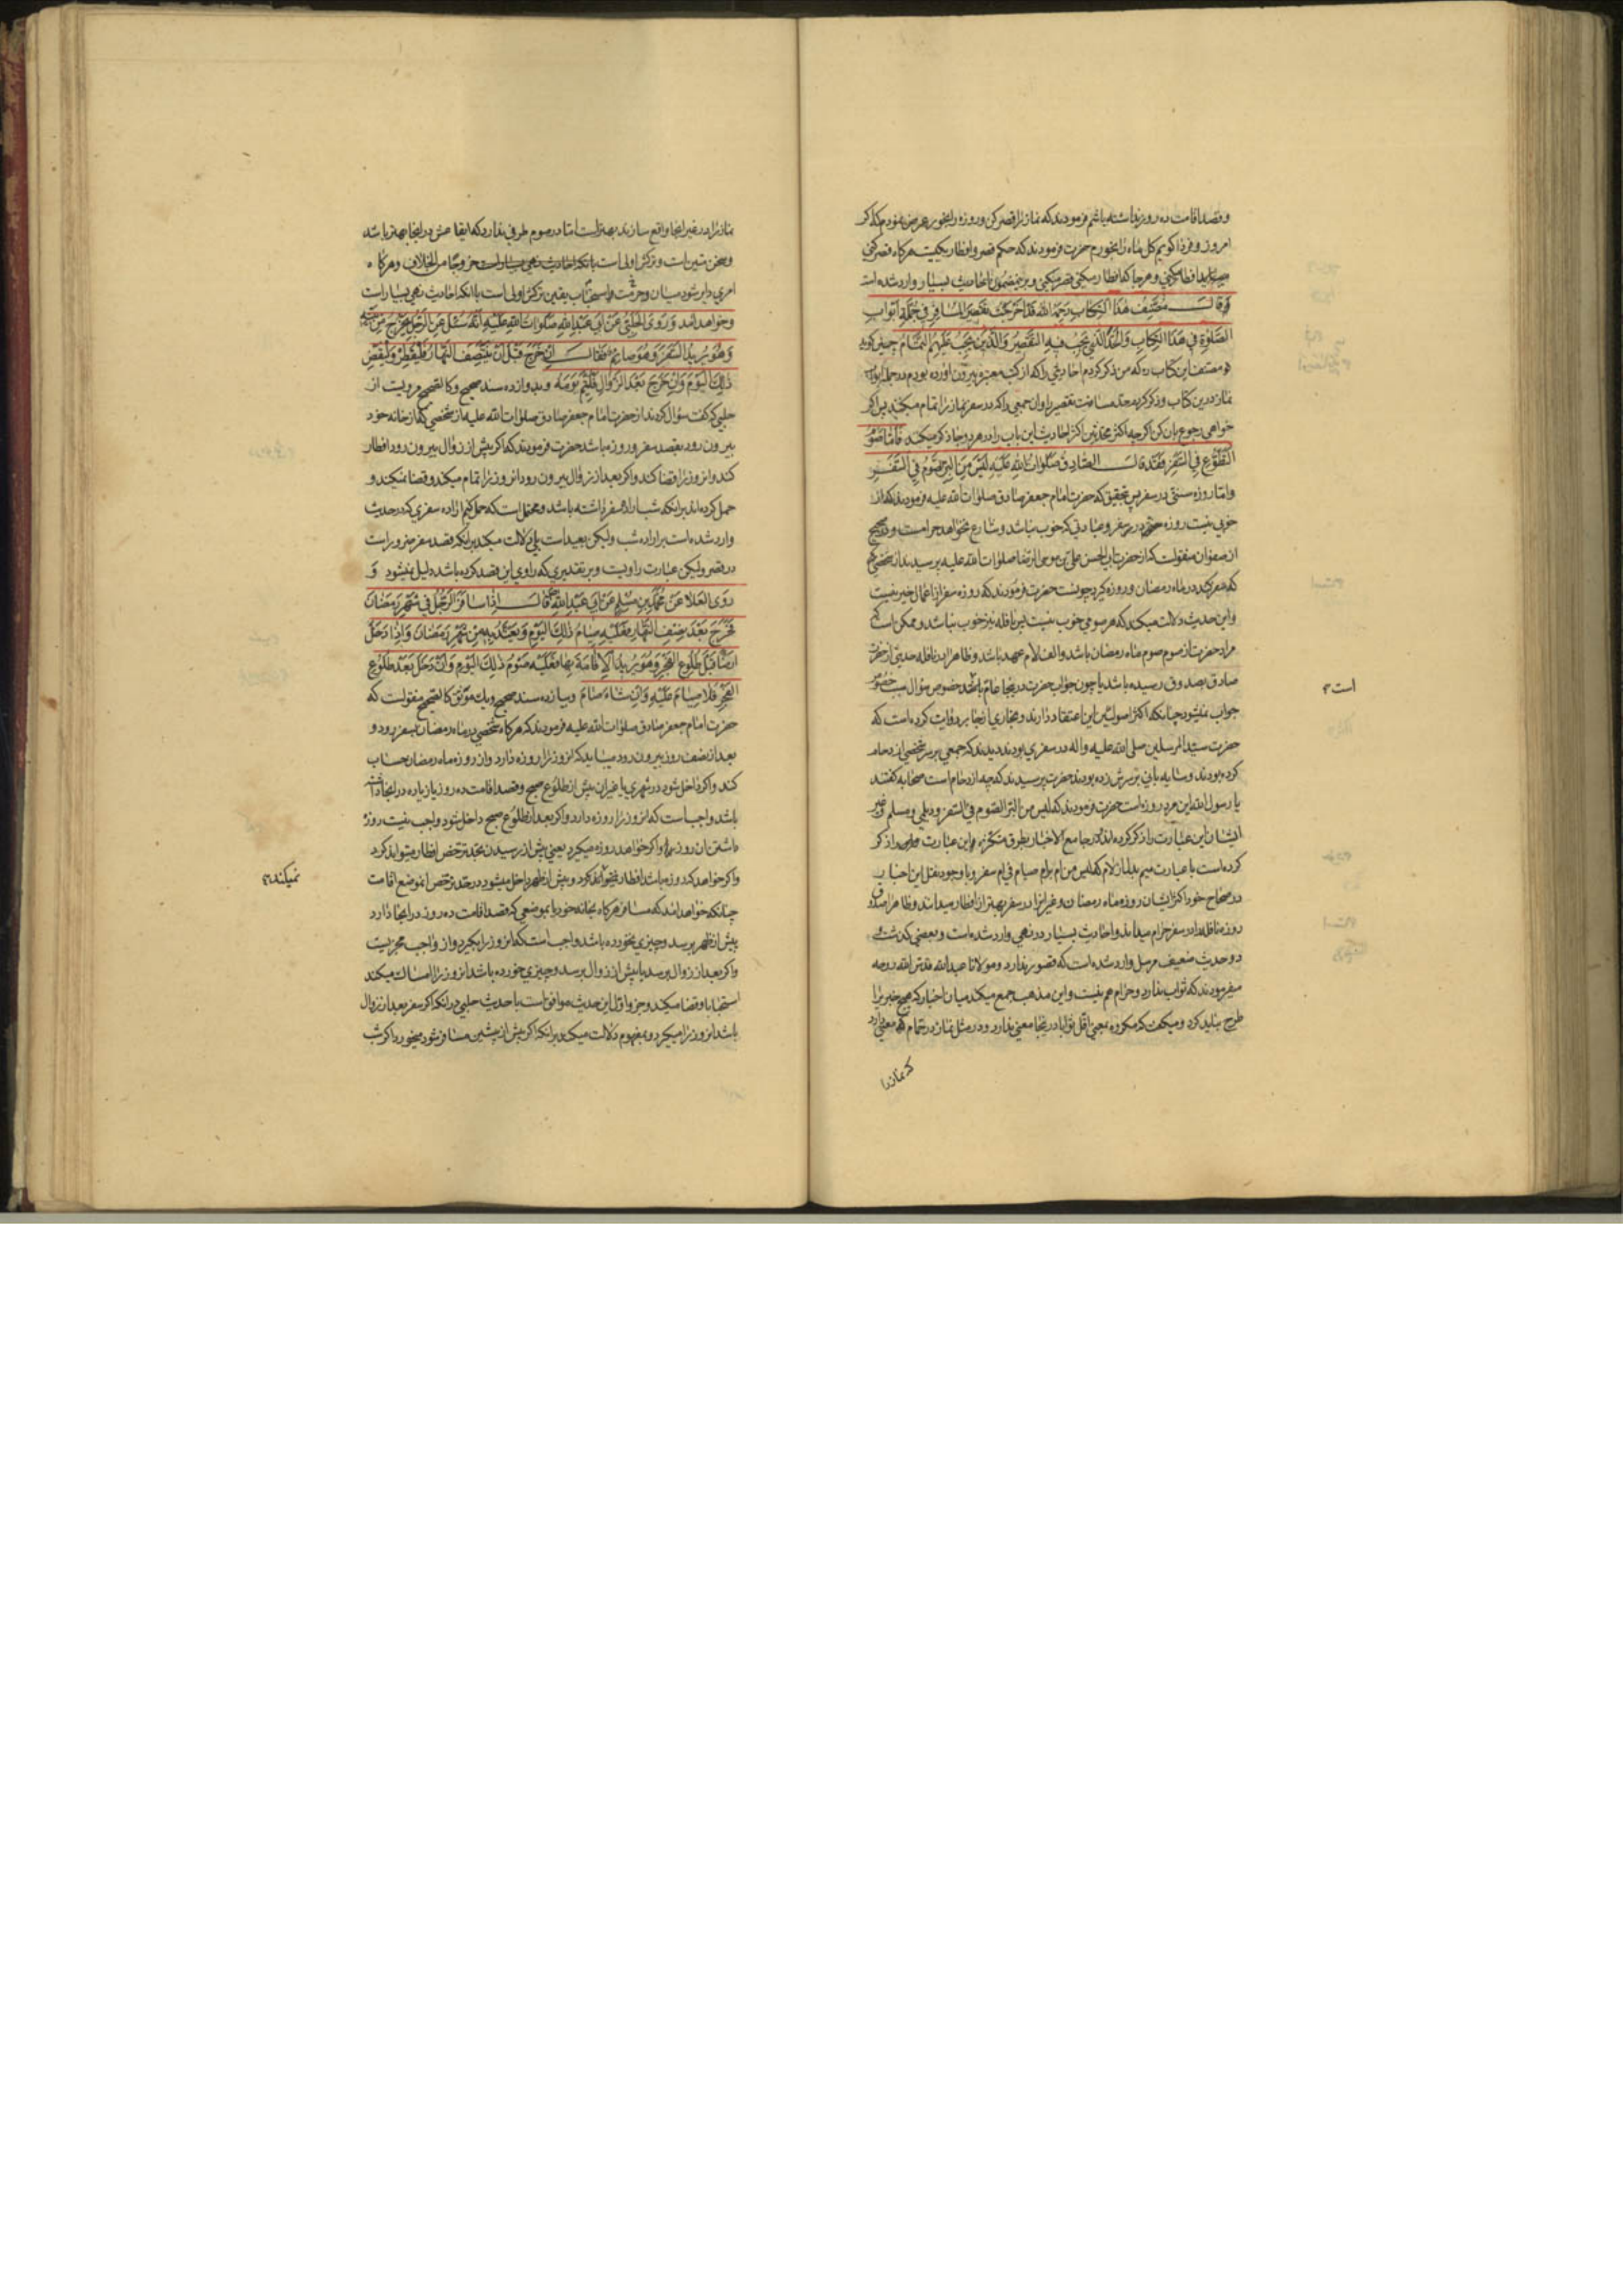 وقصد اقامت ده روز نداشته باشم فرمودند که نماز را قصر کن و روزه را بخور عرض نمودم که اگر
امروز و فردا گویم کل ماه را بخورم حضرت فرمودند که حکم قصر و افطار یکیست هرگاه قصر کنی
افطار میکنی و هرجا که افطار میکنی قصر میکنی و برین مضمون احادیث بسیار وارد شده است
وَقَالَ مُصَنِّفُ هٰذَا الْكِتَابِ رَحِمَهُ اللّٰه قَدْ اَخْرَجْتُ تَقْصِيرَ الْمُسَافِرِ فِي جُمْلَةِ اَبْوَابِ
الصَّلٰوةِ فِي هٰذَا الْكِتَابِ وَالْحَدَّ الَّذِي يَجِبُ فِيهِ التَّقْصِيرُ وَالَّذِينَ يَجِبُ عَلَيْهِمُ التَّمَامُ چنین گوید
مصنف این کتاب که من ذکر کردم احادیثی را که از کتب معتبره بیرون آورده بودم در جمله ابواب
نماز درین کتاب و ذکر کردم حد مسافت تقصیر را و آن جمعی را که در سفر نماز را تمام میکنند پس اگر
خواهی رجوع بآن کن اگرچه اکثر محدثین اکثر احادیث این باب را در هر دو جا ذکر میکنند فَاَمَّا صَوْمُ
التَّطَوُّعِ فِي السَّفَرِ فَقَدْ قَالَ الصَّادِقُ صَلَوَاتُ اللّٰهِ عَلَيْهِ لَيْسَ مِنَ الْبِرِّ الصَّوْمُ فِي السَّفَرِ
واما روزه سنتی در سفر پس بتحقیق که حضرت امام جعفر صادق صلوات الله علیه فرمودند که از
خوبی نیست روزه در سفر و عبادتی که خوب نباشد و شارع نخواهد حرامست و در صحیح
از صفوان منقولست که از حضرت ابی الحسن علی بن موسی الرضا صلوات الله علیه پرسیدند از شخصی
که سفر کند در ماه رمضان و روزه گیرد چونست حضرت فرمودند که روزه سفر از اعمال خیر نیست
واین حدیث دلالت میکند که هر صومی خوب نیست پس نافله نیز خوب نباشد و ممکن است که
مراد حضرت از صوم صوم ماه رمضان باشد و الف لام عهد باشد و ظاهرا در نافله حدیثی از حضرت
صادق بصدوق رسیده باشد یا چون جواب حضرت در اینجا عام باشد خصوص سؤال سبب خصوص
جواب نمیشود چنانکه اکثر اصولیین این اعتقاد دارند و بخاری از جابر روایت کرده است که
حضرت سید المرسلین صلی الله علیه واله در سفری بودند دیدند که جمعی بر سر شخصی ازدحام
کرده بودند و سایه بانی بر سرش زده بودند حضرت پرسیدند که چه ازدحام است صحابه گفتند
یا رسول الله این مرد روزه است حضرت فرمودند که لیس من البر الصوم فی السفر و دیلمی و مسلم و غیر
ایشان این عبارت را ذکر کرده اند و در جامع الاخبار بطرق متکثره این عبارت را ذکر
کرده است با عبارت میم بدل از لام که لیس من ام برام صیام فی ام سفر و با وجود نقل این اخبار
در صحاح خود اکثر ایشان روزه ماه رمضان و غیر آنرا در سفر بهتر از افطار میدانند و ظاهرا صدوق
روزه نافله را در سفر حرام میداند و احادیث بسیار در نهی وارد شده است و بعضی گذشت
دو حدیث ضعیف مرسل وارد شده است که قصور ندارد و مولانا عبد الله قدس الله روحه
میفرمودند که ثواب ندارد و حرام هم نیست و این مذهب جمع میکند میان اخبار که هیچ خبر را
طرح نباید کرد و میگفت که مکروه بمعنی اقل ثوابا در اینجا معنی ندارد و در مثل نماز در حمام معنی دارد
که نماز را
است
نماز را در غیر آنجا واقع سازند بهتر است اما در صوم طرفی ندارد که ایقاعش در آنجا بهتر باشد
وسخن متین است و ترکش اولی است با آنکه احادیث نهی بسیار است خروجا من الخلاف و هرگاه
امری دایر شود میان حرمت و استحباب یقین ترکش اولی است با آنکه احادیث نهی بسیار است
وخواهد آمد وَرَوَى الْحَلَبِيُّ عَنْ اَبِي عَبْدِ اللّٰهِ صَلَوَاتُ اللّٰهِ عَلَيْهِ اَنَّهُ سُئِلَ عَنِ الرَّجُلِ يَخْرُجُ مِنْ بَيْتِهِ
وَهُوَ يُرِيدُ السَّفَرَ وَهُوَ صَائِمٌ فَقَالَ اِنْ خَرَجَ قَبْلَ اَنْ يَنْتَصِفَ النَّهَارُ فَلْيُفْطِرْ وَلْيَقْضِ
ذٰلِكَ الْيَوْمَ وَاِنْ خَرَجَ بَعْدَ الزَّوَالِ فَلْيُتِمَّ يَوْمَهُ وبدوازده سند صحیح و کالصحیح مرویست از
حلبی که گفت سؤال کردند از حضرت امام جعفر صادق صلوات الله علیه از شخصی که از خانه خود
بیرون رود بقصد سفر و روزه باشد حضرت فرمودند که اگر پیش از زوال بیرون رود افطار
کند و آنروز را قضا کند و اگر بعد از زوال بیرون رود آنروز را تمام میکند و قضا نمیکند و
حمل کرده اند بر آنکه شب اراده سفر داشته باشد و محتمل است که حمل کنیم اراده سفری که در حدیث
وارد شده است بر اراده شب ولیکن بعید است بلی دلالت میکند بر آنکه قصد سفر ضرور است
در قصر ولیکن عبارت راویست و بر تقدیری که راوی این قصد کرده باشد دلیل نمیشود وَ
رَوَى الْعَلَا عَنْ مُحَمَّدِ بْنِ مُسْلِمٍ عَنْ اَبِي عَبْدِ اللّٰهِ قَالَ اِذَا سَافَرَ الرَّجُلُ فِي شَهْرِ رَمَضَانَ
فَخَرَجَ بَعْدَ نِصْفِ النَّهَارِ فَعَلَيْهِ صِيَامُ ذٰلِكَ الْيَوْمِ وَيَعْتَدُّ بِهِ مِنْ شَهْرِ رَمَضَانَ وَاِذَا دَخَلَ
اَرْضًا قَبْلَ طُلُوعِ الْفَجْرِ وَهُوَ يُرِيدُ الْاِقَامَةَ بِهَا فَعَلَيْهِ صَوْمُ ذٰلِكَ الْيَوْمِ وَاِنْ دَخَلَ بَعْدَ طُلُوعِ
الْفَجْرِ فَلَا صِيَامَ عَلَيْهِ وَاِنْ شَاءَ صَامَ وبیازده سند صحیح و یک موثق کالصحیح منقولست که
حضرت امام جعفر صادق صلوات الله علیه فرمودند که هرگاه شخصی در ماه رمضان بسفر رود و
بعد از نصف روز بیرون رود میباید که آنروز را روزه دارد و آن روز از ماه رمضان حساب
کند و اگر داخل شود در شهری یا غیر آن پیش از طلوع صبح و قصد اقامت ده روز یا زیاده در آنجا داشته
باشد واجب است که آنروز را روزه دارد و اگر بعد از طلوع صبح داخل شود واجب نیست روزه
داشتن آن روز و اگر خواهد روزه میگیرد یعنی پیش از رسیدن بحد ترخص افطار میتواند کرد
واگر خواهد که روزه باشد افطار نکند و پیش از ظهر داخل میشود در حد ترخص آنموضع اقامت
چنانکه خواهد آمد که مسافر هرگاه بخانه خود یا بموضعی که قصد اقامت ده روز در آنجا دارد
پیش از ظهر برسد و چیزی نخورده باشد واجب است که آنروز را بگیرد و از واجب مجزیست
واگر بعد از زوال برسد یا پیش از زوال برسد و چیزی خورده باشد آنروز را امساک میکند
استحبابا و قضا میکند و جزو اول این حدیث موافق است با حدیث حلبی در آنکه اگر سفر بعد از زوال
باشد آنروز را میگیرد و بمفهوم دلالت میکند بر آنکه اگر پیش از پیشین مسافر شود میخورد اگر شب
نمیکند